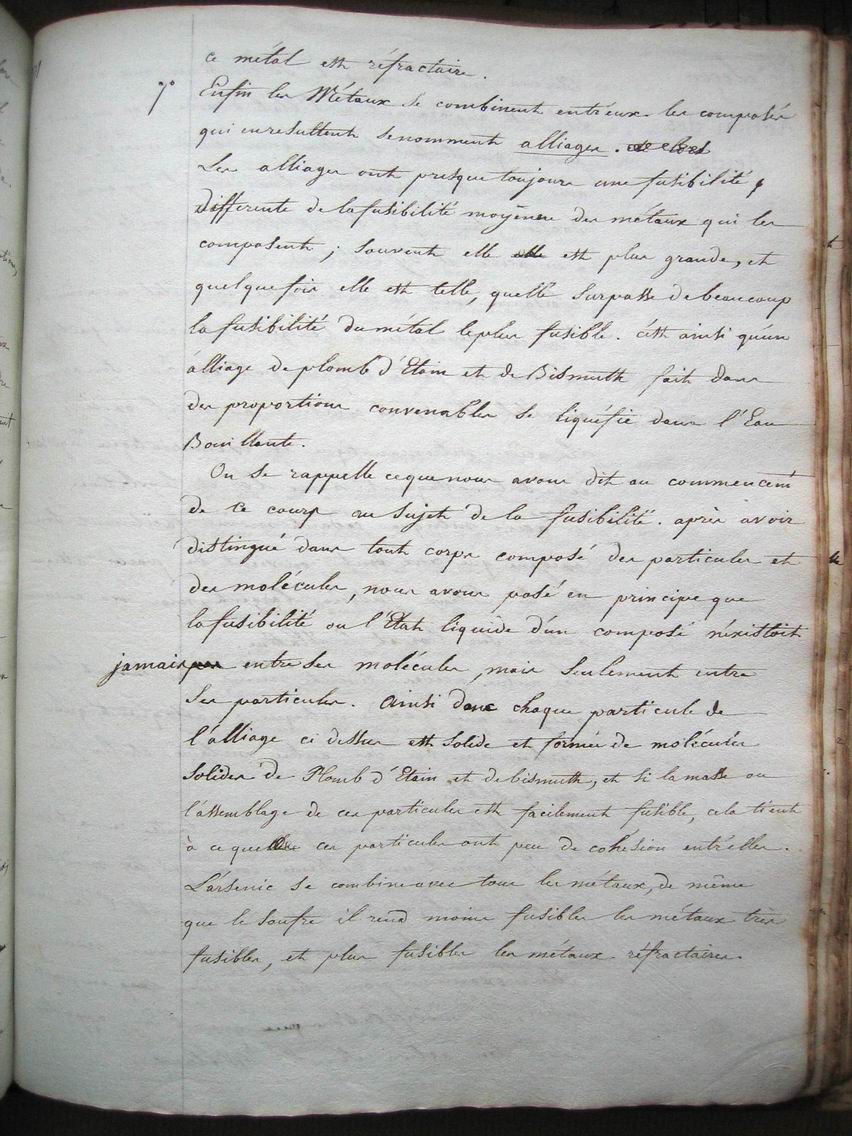 ce métal est réfractaire.
7° Enfin les Métaux se combinent entr'eux les composés
qui en resultent se nomment alliages.
Les alliages ont presque toujours une fusibilité
differente de la fusibilité moyenne des métaux qui les
composent ; souvent elle est plus grande, et
quelque fois elle est telle, quelle surpasse de beaucoup
la fusibilité du métal le plus fusible. c'est ainsi qu'un
alliage de plomb d'Etain et de Bismuth fait dans
des proportions convenables se liquéfie dans l'Eau
Bouillante.
On se rappelle ce que nous avons dit au commencemt
de ce cours au sujet de la fusibilité. après avoir
distingué dans tout corps composé des particules et
des molécules, nous avons posé en principe que
la fusibilité ou l'Etat liquide d'un composé n'éxistoit
jamais entre ses molécules, mais seulement entre
ses particules. Ainsi donc chaque particule de
l'alliage ci dessus est solide et formée de molécules
solides de Plomb d'Etain et de bismuth, et si la masse ou
l'assemblage de ces particules est facilement fusible, cela tient
à ce que ces particules ont peu de cohésion entr'elles.
L'arsenic se combine avec tous les métaux, de même
que le soufre il rend moins fusibles les métaux très
fusibles, et plus fusibles les métaux réfractaires.